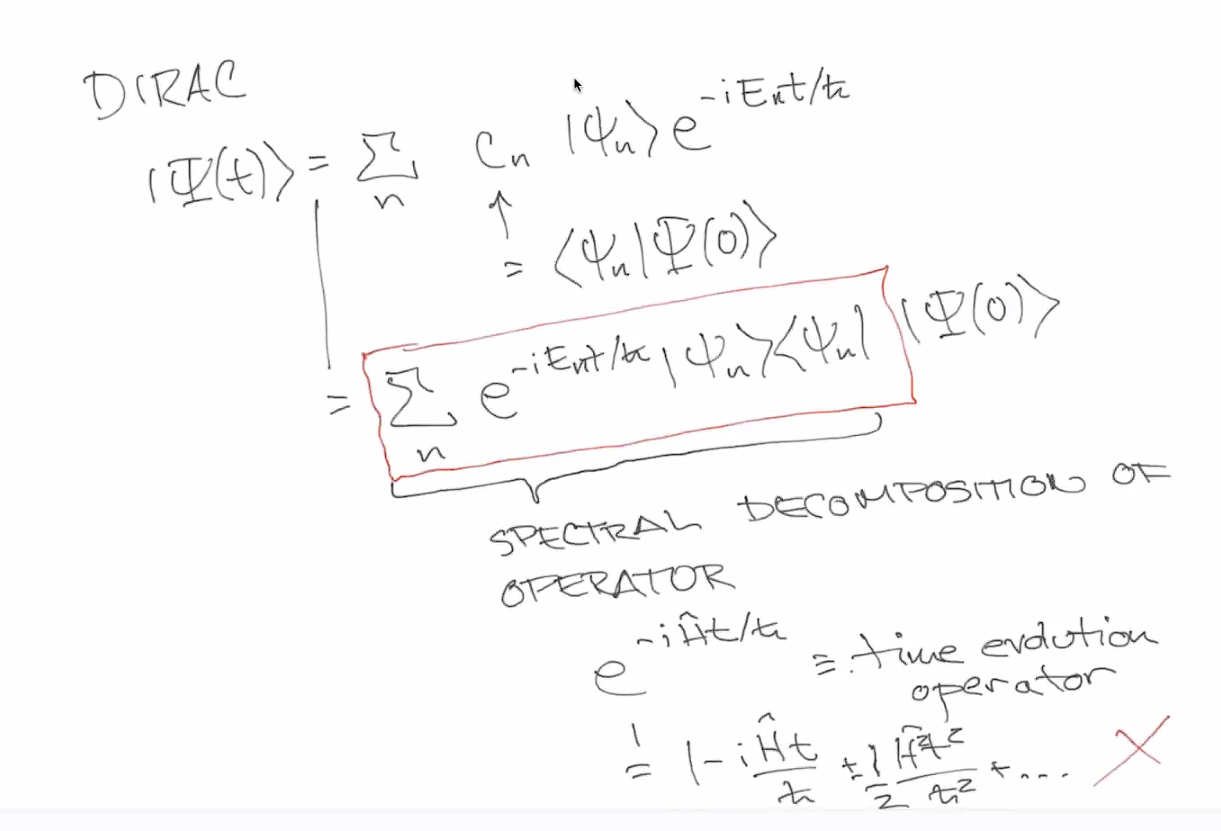 DIRAC
|Ψ(t)⟩ = Σ_n C_n |ψ_n⟩ e^{-iE_nt/ħ}
↑
= ⟨ψ_n|Ψ(0)⟩
= Σ_n e^{-iE_nt/ħ} |ψ_n⟩⟨ψ_n| |Ψ(0)⟩
SPECTRAL DECOMPOSITION OF
OPERATOR
e^{-iĤt/ħ} ≡ time evolution
operator
= 1 - i Ĥt/ħ ± 1/2 Ĥ²t²/ħ² + ...